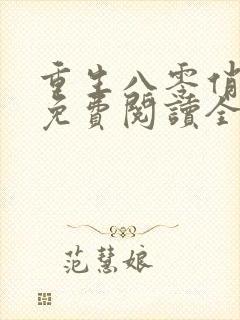 重生八零俏
免費閱讀全
范慧娘